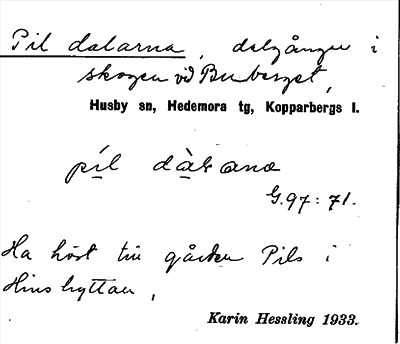 Pil dalarna, dalgånger i
skogen vid Buberget,
Husby sn, Hedemora tg, Kopparbergs l.
pil dàlana
G. 97: 71.
Ha hört till gården Pils i
Hinshyttan,
Karin Hessling 1933.